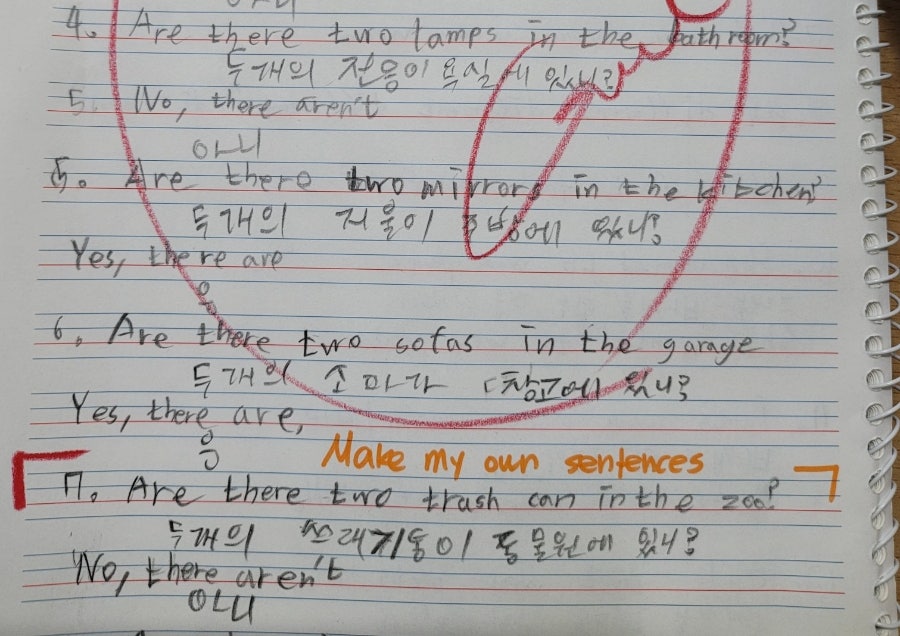 아니
4. Are there two lamps in the bathroom?
두개의 전등이 욕실에 있니?
5. No, there aren't
아니
5. Are there two mirrors in the kitchen?
두개의 거울이 에 있니?
Yes, there are
응
6. Are there two sofas in the garage
두개의 소파가 창고에 있니?
Yes, there are,
응
Make my own sentences
7. Are there two trash can in the zoo?
두개의 쓰래기통이 동물원에 있니?
No, there aren't
아니